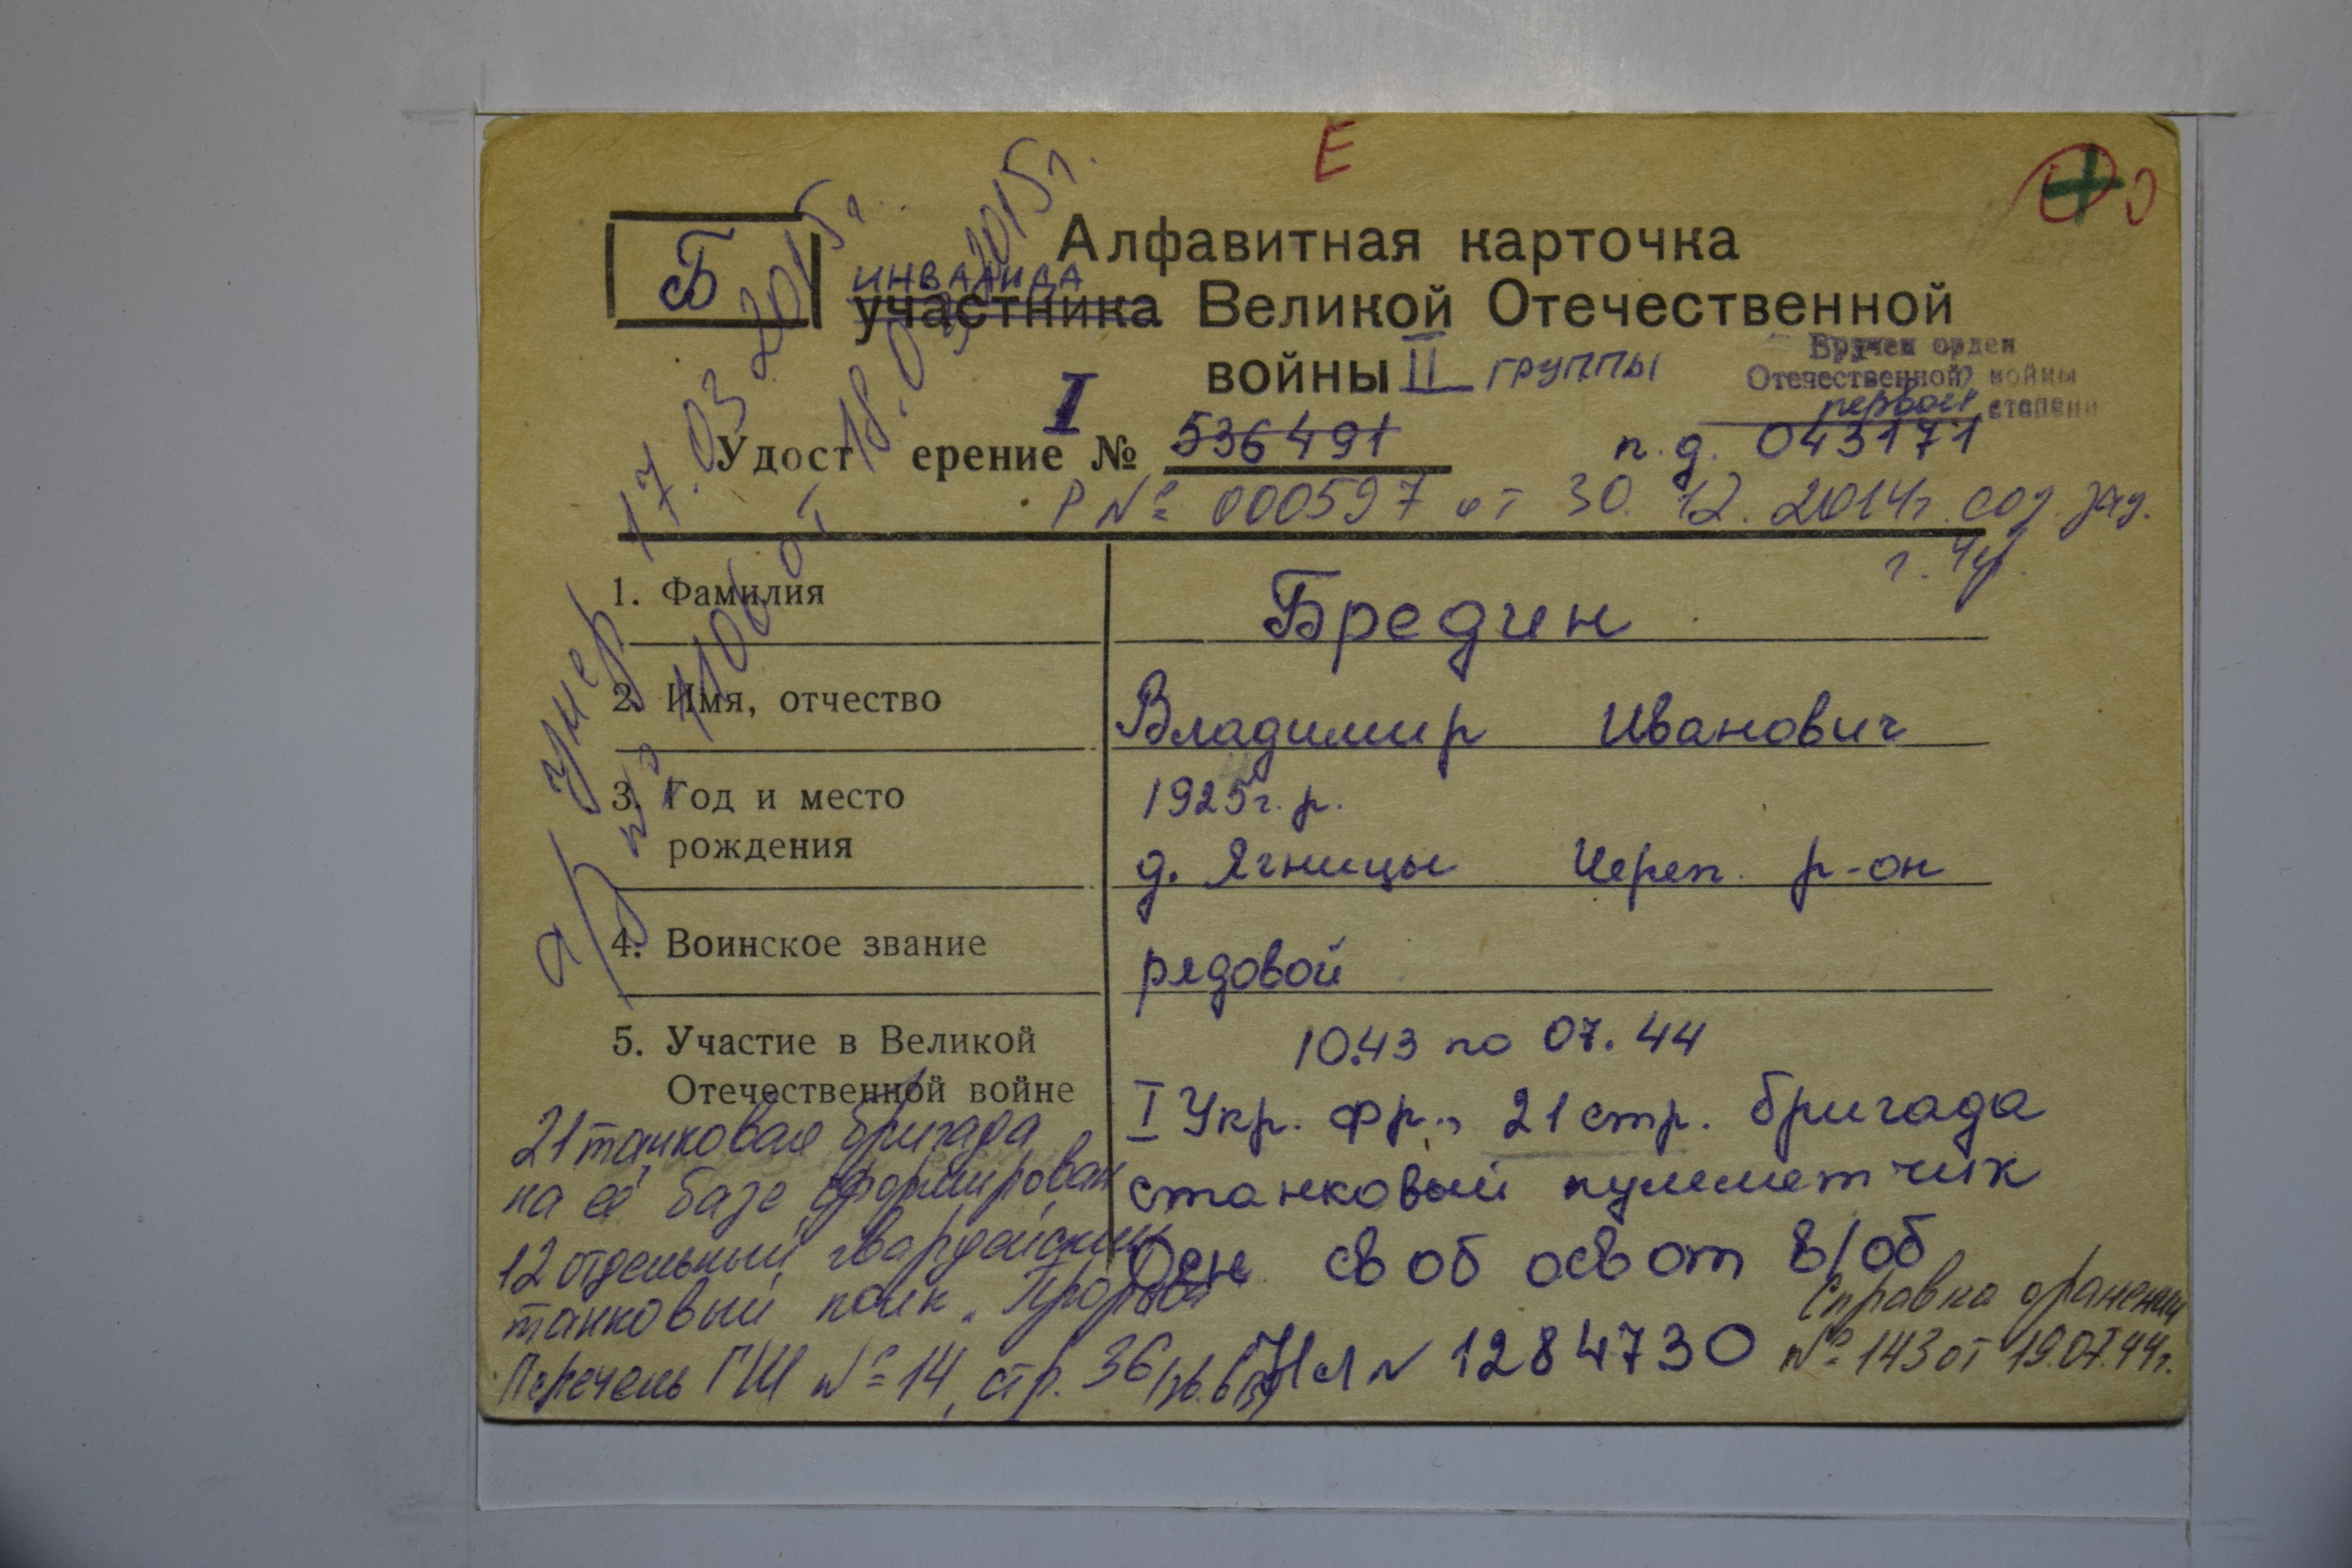 Е
Б
Алфавитная карточка
ИНВАЛИДА
участника Великой Отечественной
войны II группы
Вручен орден
Отечественной войны
первой степени
I
Удостоверение № 536491
п.д. 043171
Р № 000597 от 30.12.2014г. соз. зад.
г. Чер.
умер 17.03.2015г.
а/з № 1106 от 18.03.2015г.
1. Фамилия
Бредин
2. Имя, отчество
Владимир Иванович
3. Год и место
рождения
1925г.р.
д. Ягницы Череп. р-он
4. Воинское звание
рядовой
5. Участие в Великой
Отечественной войне
10.43 по 07.44
I Укр. фр., 21 стр. бригада
станковый пулеметчик
Осн. св об осв от в/об
НЛ № 1284730
Справка о ранении
№ 143 от 19.07.44г.
21 танковая бригада
на её базе сформирован
12 отдельный гвардейский
танковый полк "Прорыва"
Перечень ГШ № 14, стр. 36